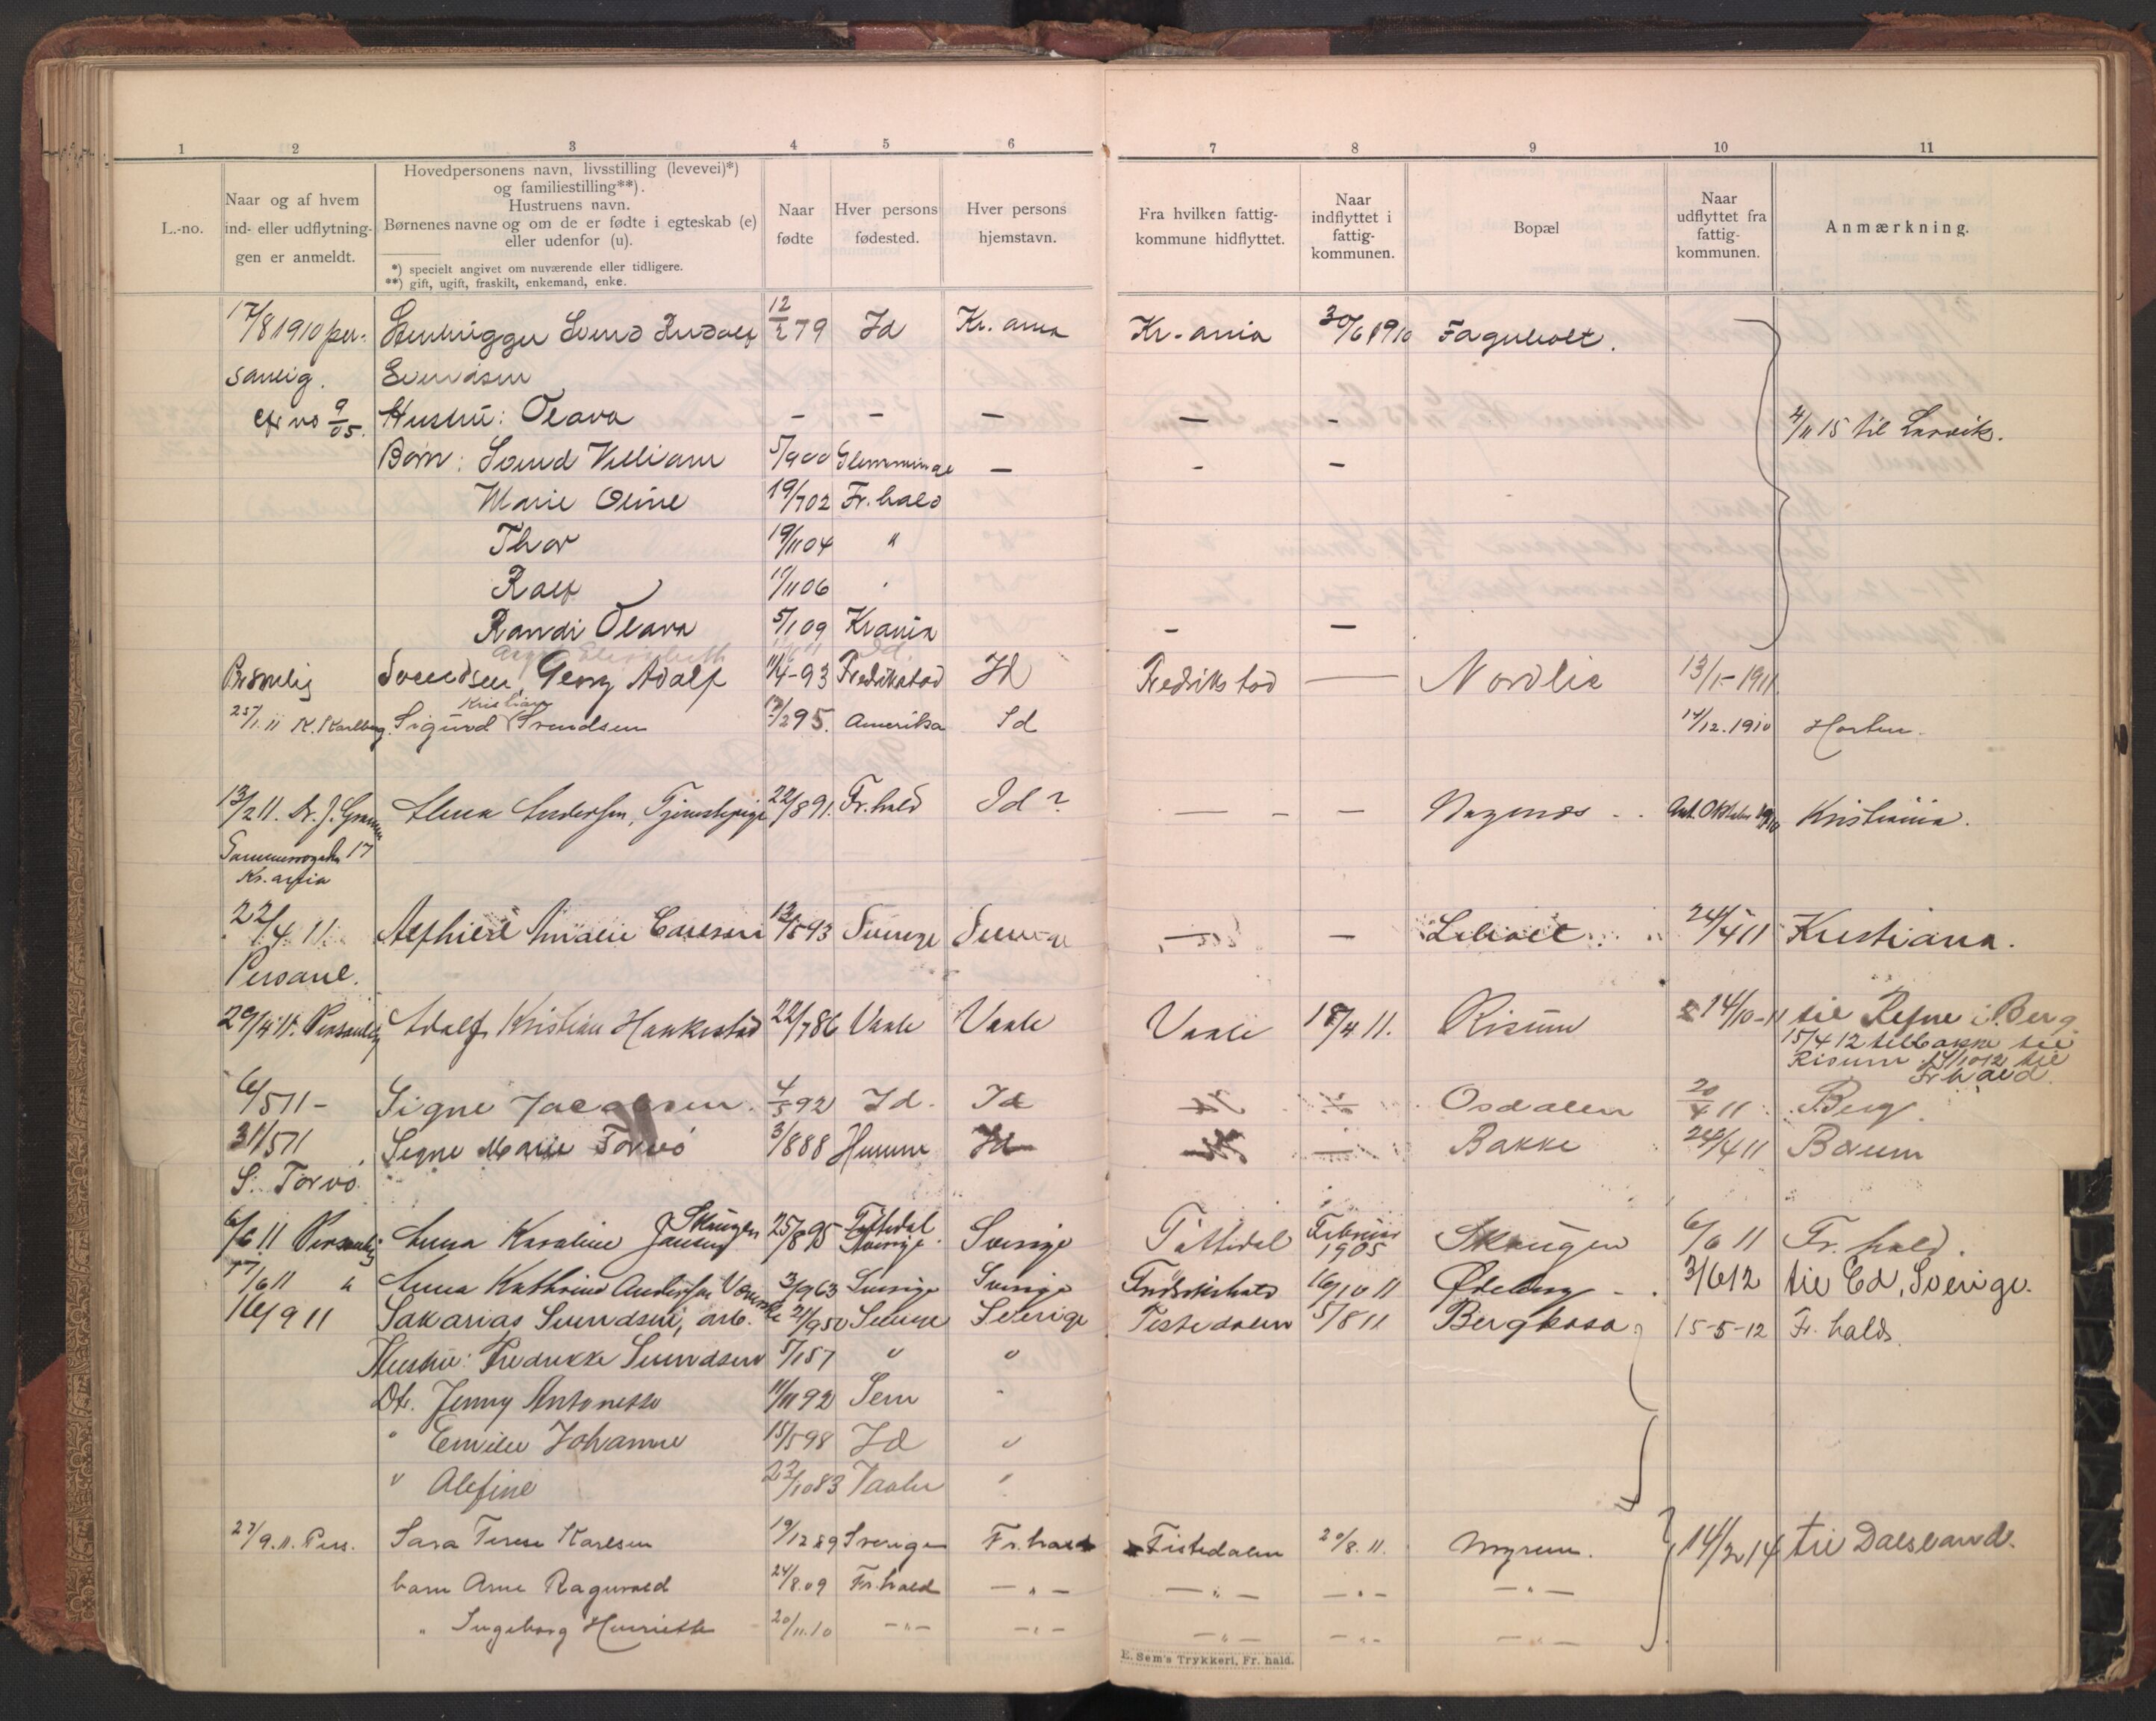 1 2 3 4 5 6 7 8 9 10 11
L.-no.
Naar og af hvem
ind- eller udflytnin-
gen er anmeldt.
Hovedpersonens navn, livsstilling (levevei)*)
og familiestilling**).
Hustruens navn.
Børnenes navne og om de er fødte i egteskab (e)
eller udenfor (u).
*) specielt angivet om nuværende eller tidligere.
**) gift, ugift, fraskilt, enkemand, enke.
Naar
fødte
Hver persons
fødested.
Hver persons
hjemstavn.
Fra hvilken fattig-
kommune hidflyttet.
Naar
indflyttet i
fattig-
kommunen.
Bopæl
Naar
udflyttet fra
fattig-
kommunen.
Anmærkning.
17/8 1910 per- Stenhugger Svend Rudolf 12/2 79 Id Kr. ania Kr. ania 30/6 1910 Fagerholt.
sonlig. Svendsen
9/05. Hustru: Olava — — — — — 4/11 15 til Larvik.
Børn: Svend Villiam 5/9 00 Glemminge — - —
Marie Oline 19/7 02 Fr. hald
Thor 19/11 04 "
Ralf 1/11 06 "
Randi Olava 5/1 09 Kr ania - —
Elisabeth Id.
Personlig Svendsen, Georg Adolf 11/4-93 Fredrikstad Id Fredrikstad — Nordlie 13/1-1911.
Kristian
25/1.11 K. Karlberg. Sigurd Svendsen 12/2 95. Amerika Id 14/12.1910 Horten.
13/2 11. Anna Andersen, Tjenestepige 22/8 91. Fr. hald Id? — - — Ant. Oktober 1910 Kristiania.
17
Kr. ania
22/4 11. Alfhild Amalie Carlsen 13/5 93 Sverige Sverige — — Liholt. 24/4 11 Kristiania.
Personl.
29/4 11. Personlig Adolf Kristian Haukestad 22/7 86 Vaale Vaale Vaale 18/4 11. Risum 14/10-11 til Refne i Berg
15/4 12 tilbakke til
Risum 14/10 12 til
Fr hald.
6/5 11 - Signe Jacobsen. 4/5 92 Id. Id Osdalen 20/4 11 Berg.
31/5 11 Signe Marie Torvø 3/8 88 Hurum Id — Bakke 24/4 11 Bærum
S. Torvø.
6/6 11 Personlig Anna Karoline Jansen Skaugen 25/8 95 Tistedal Sverige. Sverige Tistedal Februar 1905 Skaugen 6/6 11 Fr. hald.
17/6 11 " Anna Kathrine Andersen 3/9 63 Sverige Sverige Fredrikshald 16/10 11 Ødeberg - . 3/6 12 til Ed, Sverige.
16/9 11 Sakarias Svendsen, arb. 21/9 50 Sverige Sverige Tistedalen 5/8 11 Bergkasa 15-5-12 Fr. hald.
Hustru: Fredrikke Svendsen 5/1 57 " "
Dt. Jenny Antonette 11/11 92 Sem "
" Emilie Johanne 15/5 98 Id "
" Alefine 22/10 83 Vaaler "
27/9.11. Pers. Sara Terese Karlsen 19/12 89 Sverige Fr. hald Tistedalen 20/8.11. Myren. 14/2 14 til Dalsland.
barn Arne Ragnvald 24/8.09 Fr. hald — " — — " — — " — — " —
" Ingeborg Henriette 20/11.10 — " — — " — — " — — " — — " —
E. Sem's Trykkeri, Fr. hald.